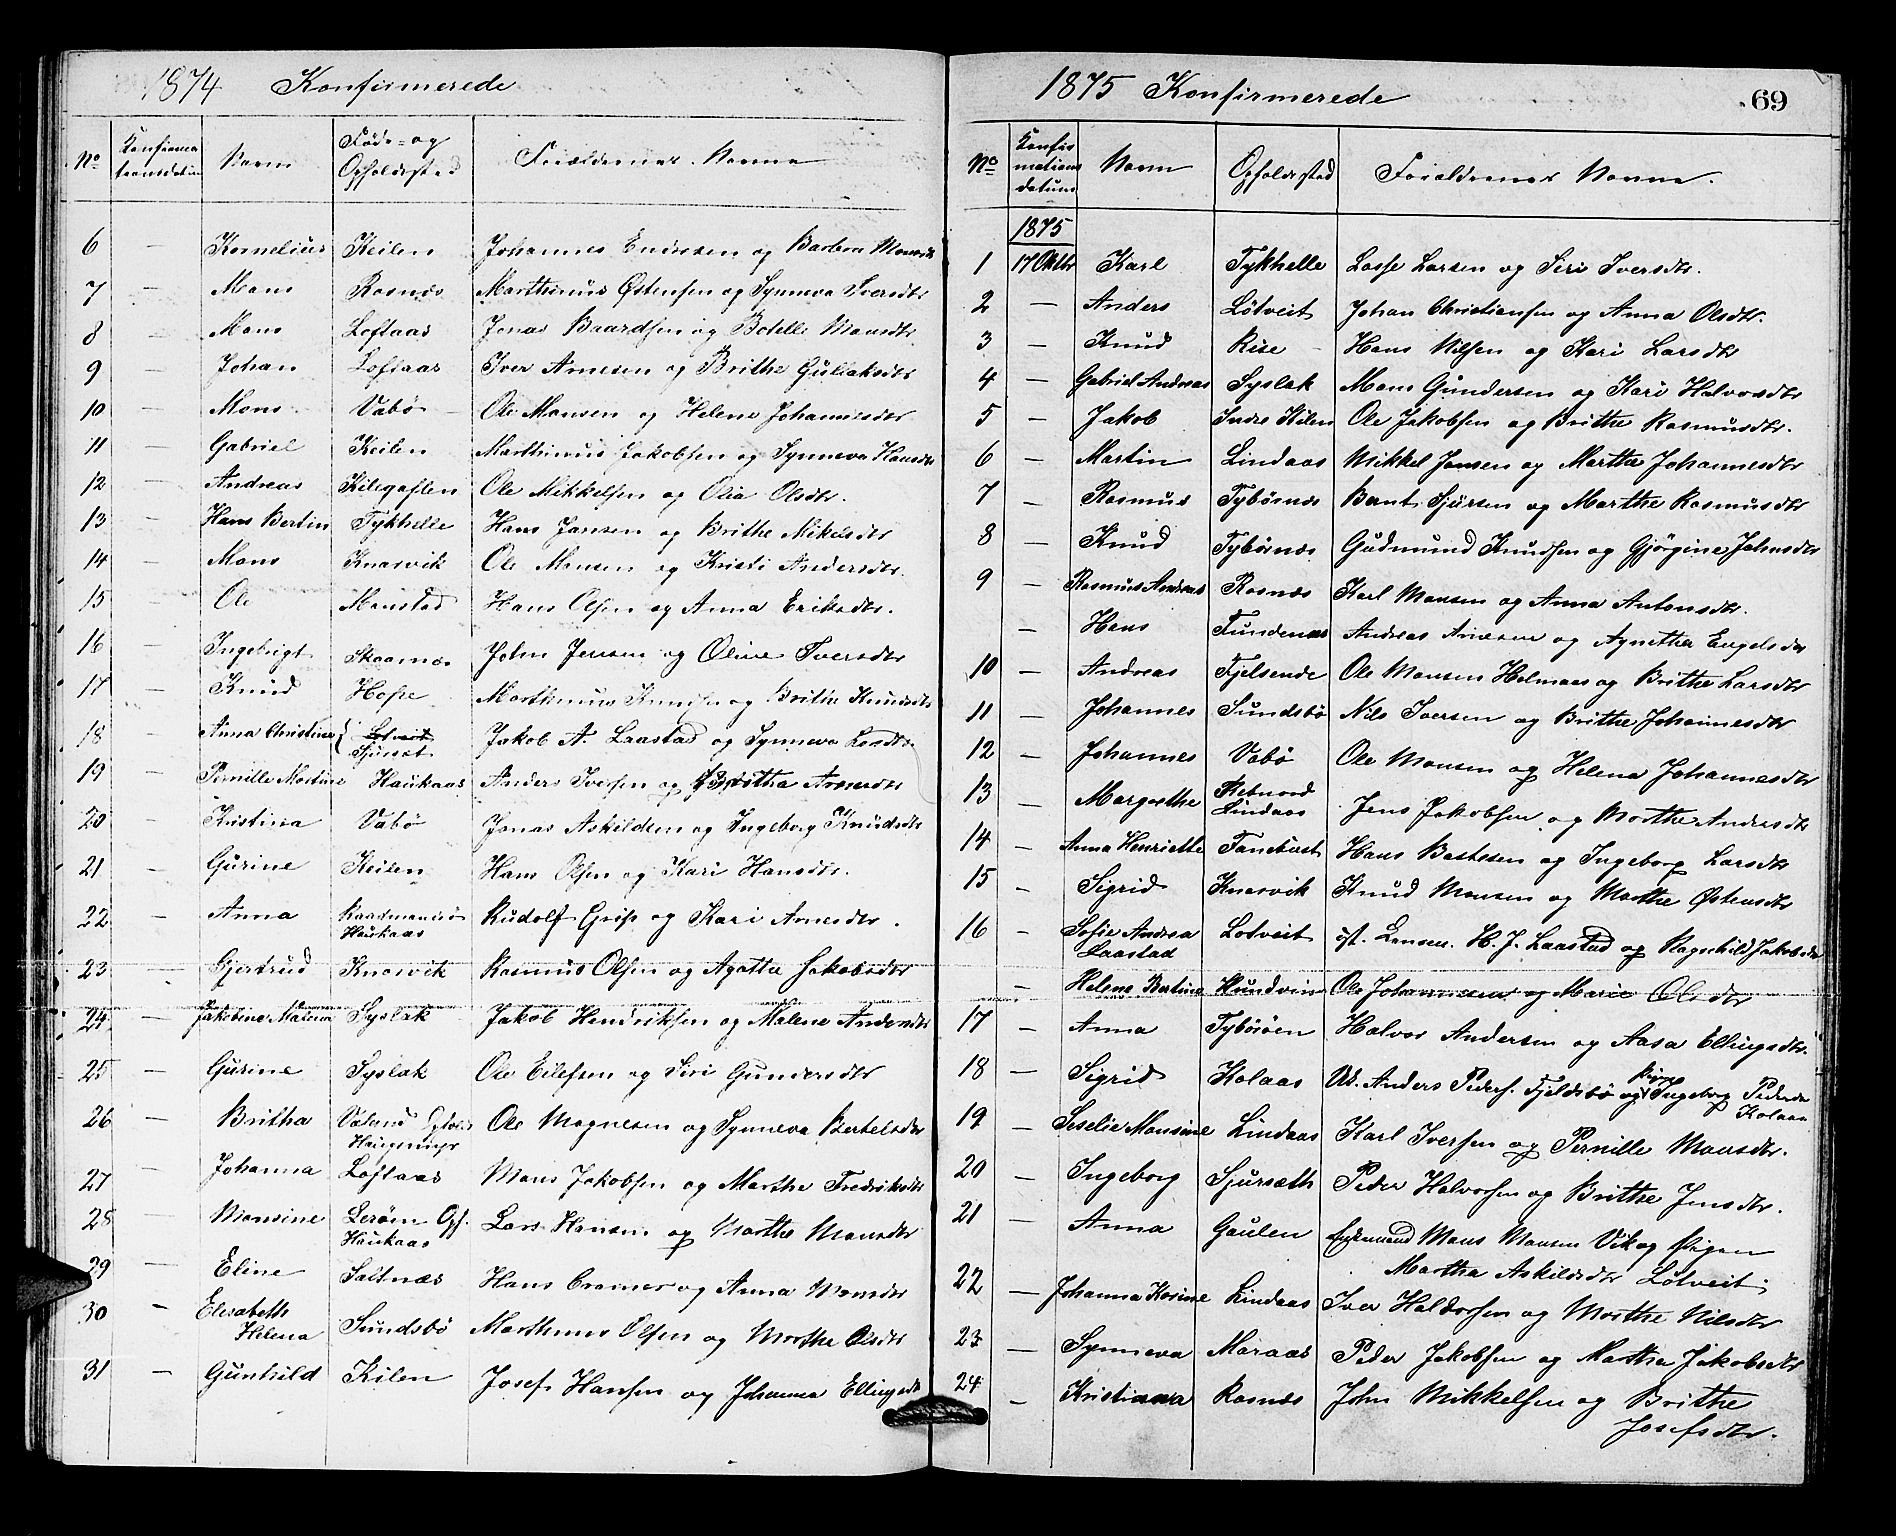 1874 Konfirmerede
No Konfirmationsdatum Navn Føde- og Opholdssted Forældrenes Navne
6 — Kornelius Keilen Johannes Endresen og Barbara Monsdtr
7 — Mons Rosnæs Marthinus Østensen og Synneva Iversdtr
8 — Mons Loftaas Jonas Baardsen og Botelle Monsdtr
9 — Johan Loftaas Iver Arnesen og Brithe Gullaksdtr
10 — Mons Vabø Ole Monsen og Helene Johannesdtr
11 — Gabriel Keilen Marthinus Jakobsen og Synneva Hansdtr
12 — Andreas Kilegaflen Ole Mikkelsen og Olia Olsdtr.
13 — Hans Bertin Tykhelle Hans Jansen og Brithe Mikelsdtr
14 — Mons Knarvik Ole Monsen og Kristi Andersdtr.
15 — Ole Monstad Hans Olsen og Anna Eriksdtr.
16 — Ingebrigt Skaanæs John Jensen og Oline Iversdtr
17 — Knud Hope Marthinus Knudsen og Brithe Knudsdtr
18 — Anna Christina { Lotveit Sjursæt Jakob A. Laastad og Synneva Larsdtr.
19 — Pernille Martine Haukaas Anders Iversen og Agatha Arnesdtr
20 — Kristina Vabø Jonas Askildsen og Ingeborg Knudsdtr
21 — Gurine Keilen Hans Olsen og Kari Hansdtr.
22 — Anna Raadmansø Haukaas Rudolf Grip og Kari Arnesdtr.
23 — Gjertrud Knarvik Rasmus Olsen og Agatha Jakobsdtr
24 — Jakobine Malena Syslak Jakob Hendriksen og Malene Andersdtr
25 — Gurine Syslak Ole Eilefsen og Siri Gundersdtr
26 — Britha Valand Haugmyr Ole Magnesen og Synneva Bertelsdtr
27 — Johanna Loftaas Mons Jakobsen og Marthe Fredriksdtr
28 — Monsine Lerøen Opf. Haukaas Lars Hansen og Marthe Monsdtr
29 — Eline Saltnæs Hans Cramer og Anna Monsdtr
30 — Elisabeth Helena Sundsbø Marthinus Olsen og Marthe Olsdtr
31 — Gunhild Kilen Josef Hansen og Johanna Ellingsdt
1875 Konfirmerede 69
No Konfirmationsdatum Navn Opholdssted Forældrenes Navne.
1875
1 17 Oktbr Karl Tykhelle Lasse Larsen og Siri Iversdtr.
2 — Anders Lötveit Johan Christiansen og Anna Olsdtr.
3 — Knud Rise Hans Nilsen og Kari Larsdtr
4 — Gabriel Andreas Syslak Mons Gundersen og Kari Halvorsdtr
5 — Jakob Indre Kilen Ole Jakobsen og Brithe Rasmusdtr.
6 — Martin Lindaas Mikkel Jansen og Marthe Johannesdtr
7 — Rasmus Tybørnæs Bernt Sjursen og Marthe Rasmusdtr
8 — Knud Tybörnæs Gudmund Knudsen og Gjørgine Johnsdtr
9 — Rasmus Andreas Rosnæs Karl Monsen og Anna Antonsdtr.
— Hans Tundenæs Andreas Arnesen og Agnethe Engelsdtr
10 — Andreas Fjelsende Ole Monsen Holmaas og Brithe Larsdtr
11 — Johannes Sundsbø Nils Iversen og Brithe Johannesdtr
12 — Johannes Vabø Ole Monsen og Helena Johannesdtr
13 — Margrethe Lindaas Jens Jakobsen og Marthe Andreasdtr
14 — Anna Henriette Tanekvist Hans Bastesen og Ingeborg Larsdtr
15 — Sigrid Knarvik Knud Monsen og Marthe Østensdtr
16 — Sofie Andrea Laastad Lotveit H. J. Laastad og Ragnhild Jakobsdtr
— Helene Bertine Hundvin Ole Johannessen og Marie Olsdtr
17 — Anna Tybøröen Halvor Andersen og Aasa Ellingsdtr.
18 — Sigrid Kolaas Ud. Anders Peders. Fjeldsbø og Pigen Ingeborg Pedersdr Kolaas
19 — Seselie Monsine Lindaas Karl Iversen og Pernille Monsdtr.
20 — Ingeborg Sjursæth Peder Halvorsen og Brithe Jensdtr.
21 — Anna Gaulen Enkemand Mons Monsen Vik og Pigen
Martha Askildsdtr Løtveit.
22 — Johanna Karine Lindaas Iver Haldorsen og Marthe Nilsdtr
23 — Synneva Maraas Peder Jakobsen og Martha Jakobsdtr
24 — Kristianna Rosnæs John Mikkelsen og Brithe
Josefsdtr.